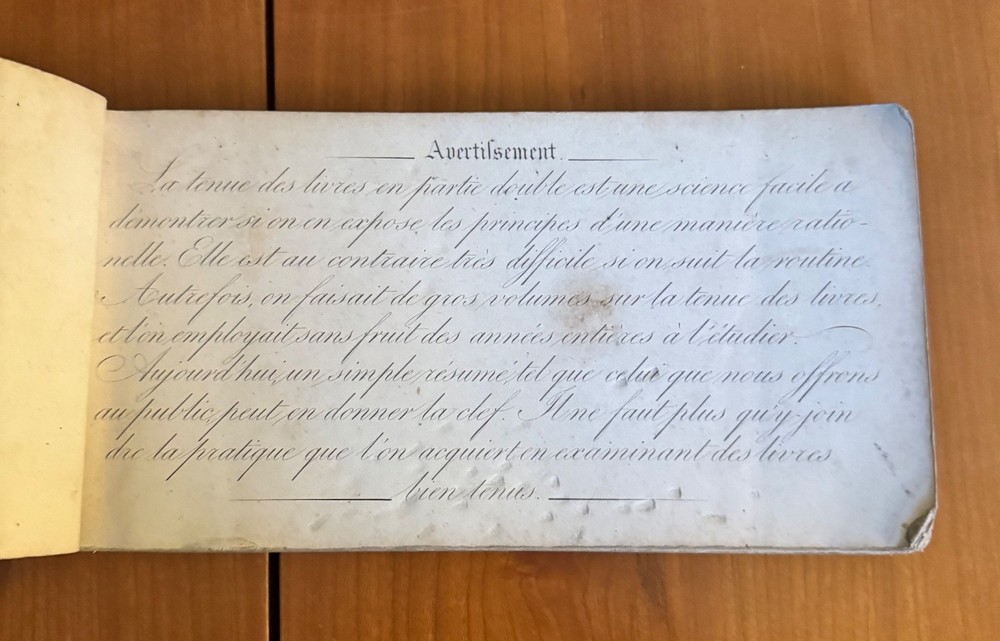 Avertiſsement.
La tenue des livres en partie double est une science facile a
démontrer si on en expose les principes d'une manière ratio-
nelle. Elle est au contraire très difficile si on suit la routine.
Autrefois, on faisait de gros volumes sur la tenue des livres,
et l'on employait sans fruit des années entières à l'étudier.
Aujourd'hui, un simple résumé, tel que celui que nous offrons
au public, peut en donner la clef. Il ne faut plus qu'y join
dre la pratique que l'on acquiert en examinant des livres
bien tenus.